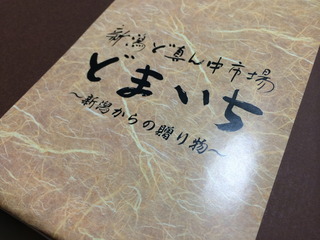 新潟ど真ん中市場
どまいち
～新潟からの贈り物～